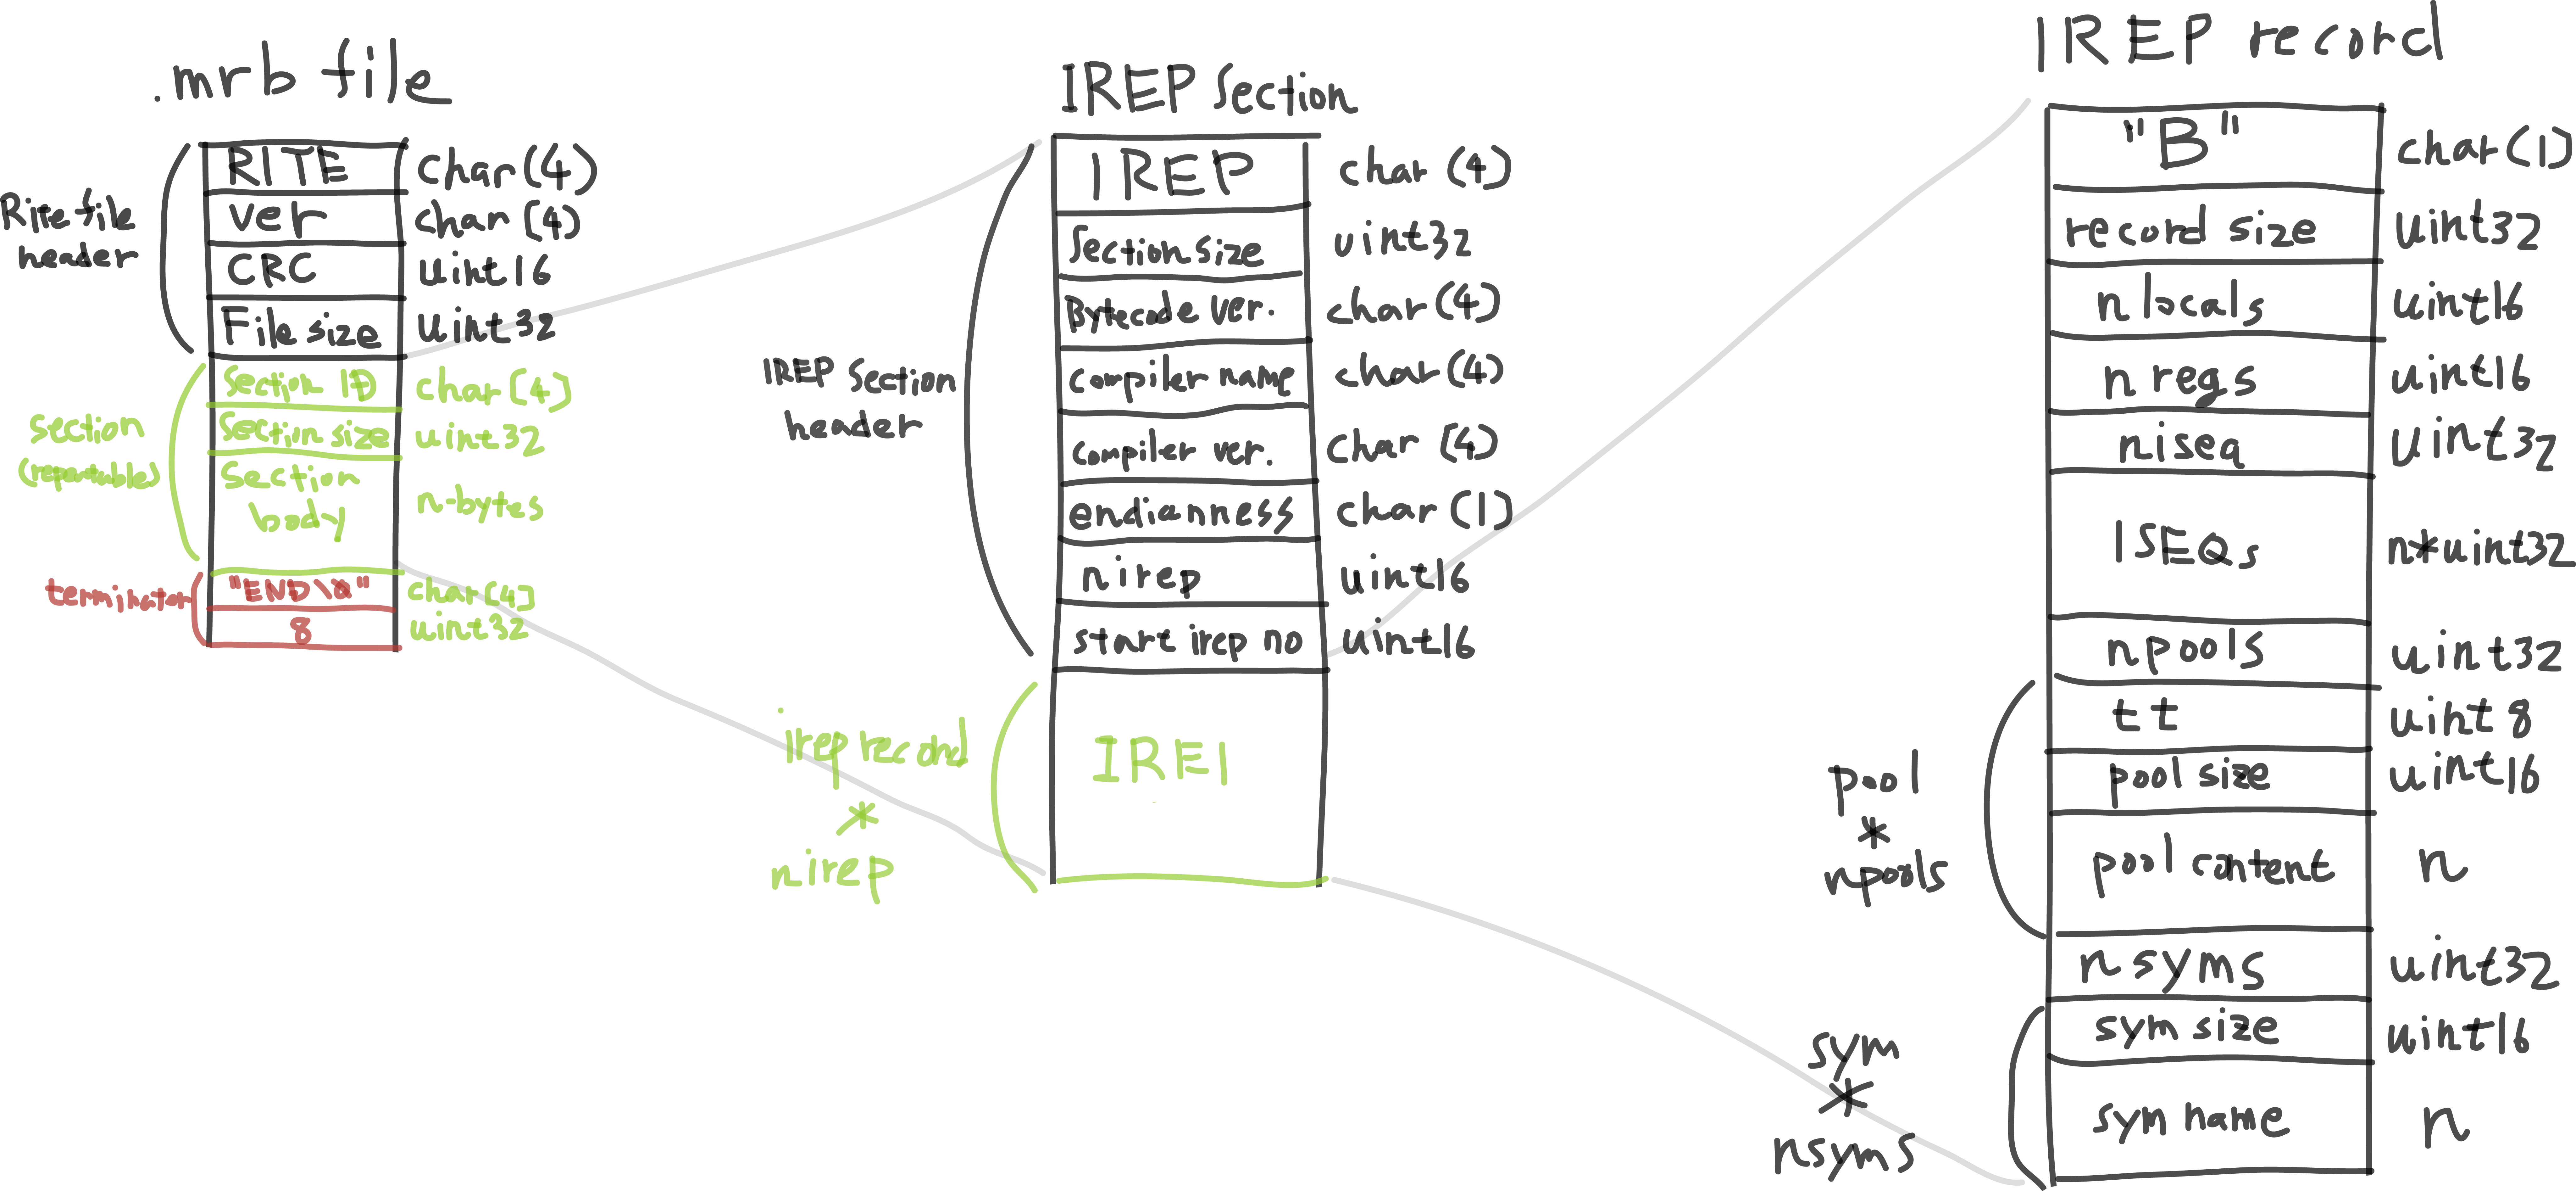 .mrb file
Rite file
header
RITE char(4)
ver char(4)
CRC uint16
File size uint32
section
(repeatable)
Section ID char(4)
Section size uint32
Section
body
n-bytes
terminator
"END\0" char(4)
8 uint32
IREP Section
IREP Section
header
IREP char(4)
Section size uint32
Bytecode ver. char(4)
compiler name char(4)
compiler ver. char(4)
endianness char(1)
nirep uint16
start irep no uint16
irep record
*
nirep
IREI
IREP record
"B" char(1)
record size uint32
nlocals uint16
nregs uint16
niseq uint32
ISEQs n*uint32
npools uint32
pool
*
npools
tt uint8
pool size uint16
pool content n
nsyms uint32
sym
*
nsyms
sym size uint16
sym name n